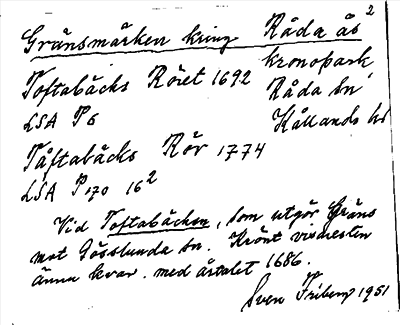 2
Gränsmärken kring Råda ås
kronopark
Toftabäcks Röret 1692
Råda sn
LSA P6
Kållands hd
Tåftabäcks Rör 1774
LSA P170 16²
Vid Toftabäcken, som utgör Gräns
mot Gösslunda sn. Krönt visaresten
ännu kvar. med årtalet 1686.
Sven Friberg 1951